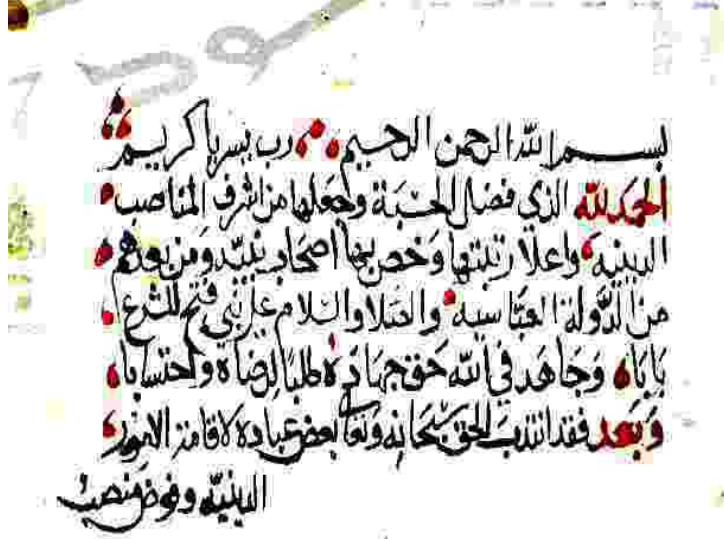 بسم الله الرحمن الرحيم رب يسر يا كريم
الحمد لله الذي فضل الحسبة وجعلها من اشرف المناصب
الدينيه واعلا رتبتها وخص بها اصحاب نبيه ومن بعدهم
من الدولة العباسيه والصلا والسلام على نبي فتح للشرع
بابا وجاهد في الله حق جهاده طلبا لرضاه واحتسابا
وبعد فقد انتدب الحق سبحانه وتعا بعض عباده لاقامة الامور
الدينيه وفوض منصب